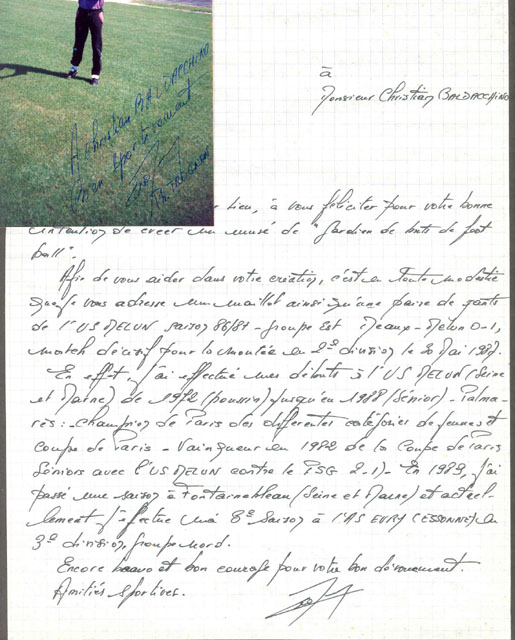 à
Monsieur Christian BALDACCHINO
A Christian BALDACCHINO
Bien sportivement
lieu, à vous féliciter pour votre bonne
intention de créer un musé de "Gardien de buts de foot
ball".
Afin de vous aider dans votre création, c'est en toute modestie
que je vous adresse un maillot ainsi qu'une paire de gants
de l'US MELUN saison 86/87 - groupe Est Meaux - Melun 0-1,
match décisif pour la montée en 2e division le 30 Mai 1987.
En effet j'ai effectué mes débuts à l'US MELUN (Seine
et Marne) de 1972 (poussin) jusqu'en 1988 (Sénior) - Palma-
rès : champion de Paris des différentes catégories de jeunes et
coupe de Paris - Vainqueur en 1982 de la Coupe de Paris
Séniors avec l'US MELUN contre le PSG 2-1) - En 1989, j'ai
passé une saison à Fontainebleau (Seine et Marne) et actuel-
lement j'effectue ma 8e saison à l'AS EVRY (ESSONNE) en
3e division groupe nord.
Encore bravo et bon courage pour votre bon dévouement.
Amitiés Sportives.